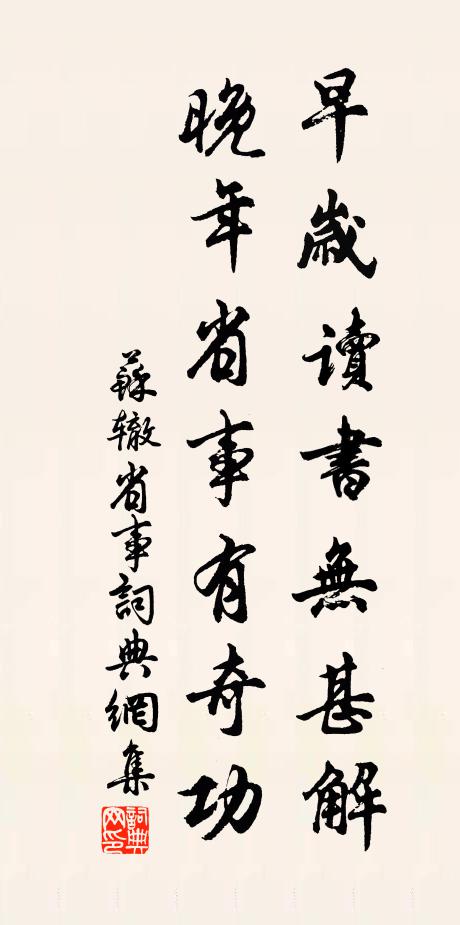 早歲讀書無甚解
晚年省事有奇功
蘇辙省事詞典網集
詞典网印